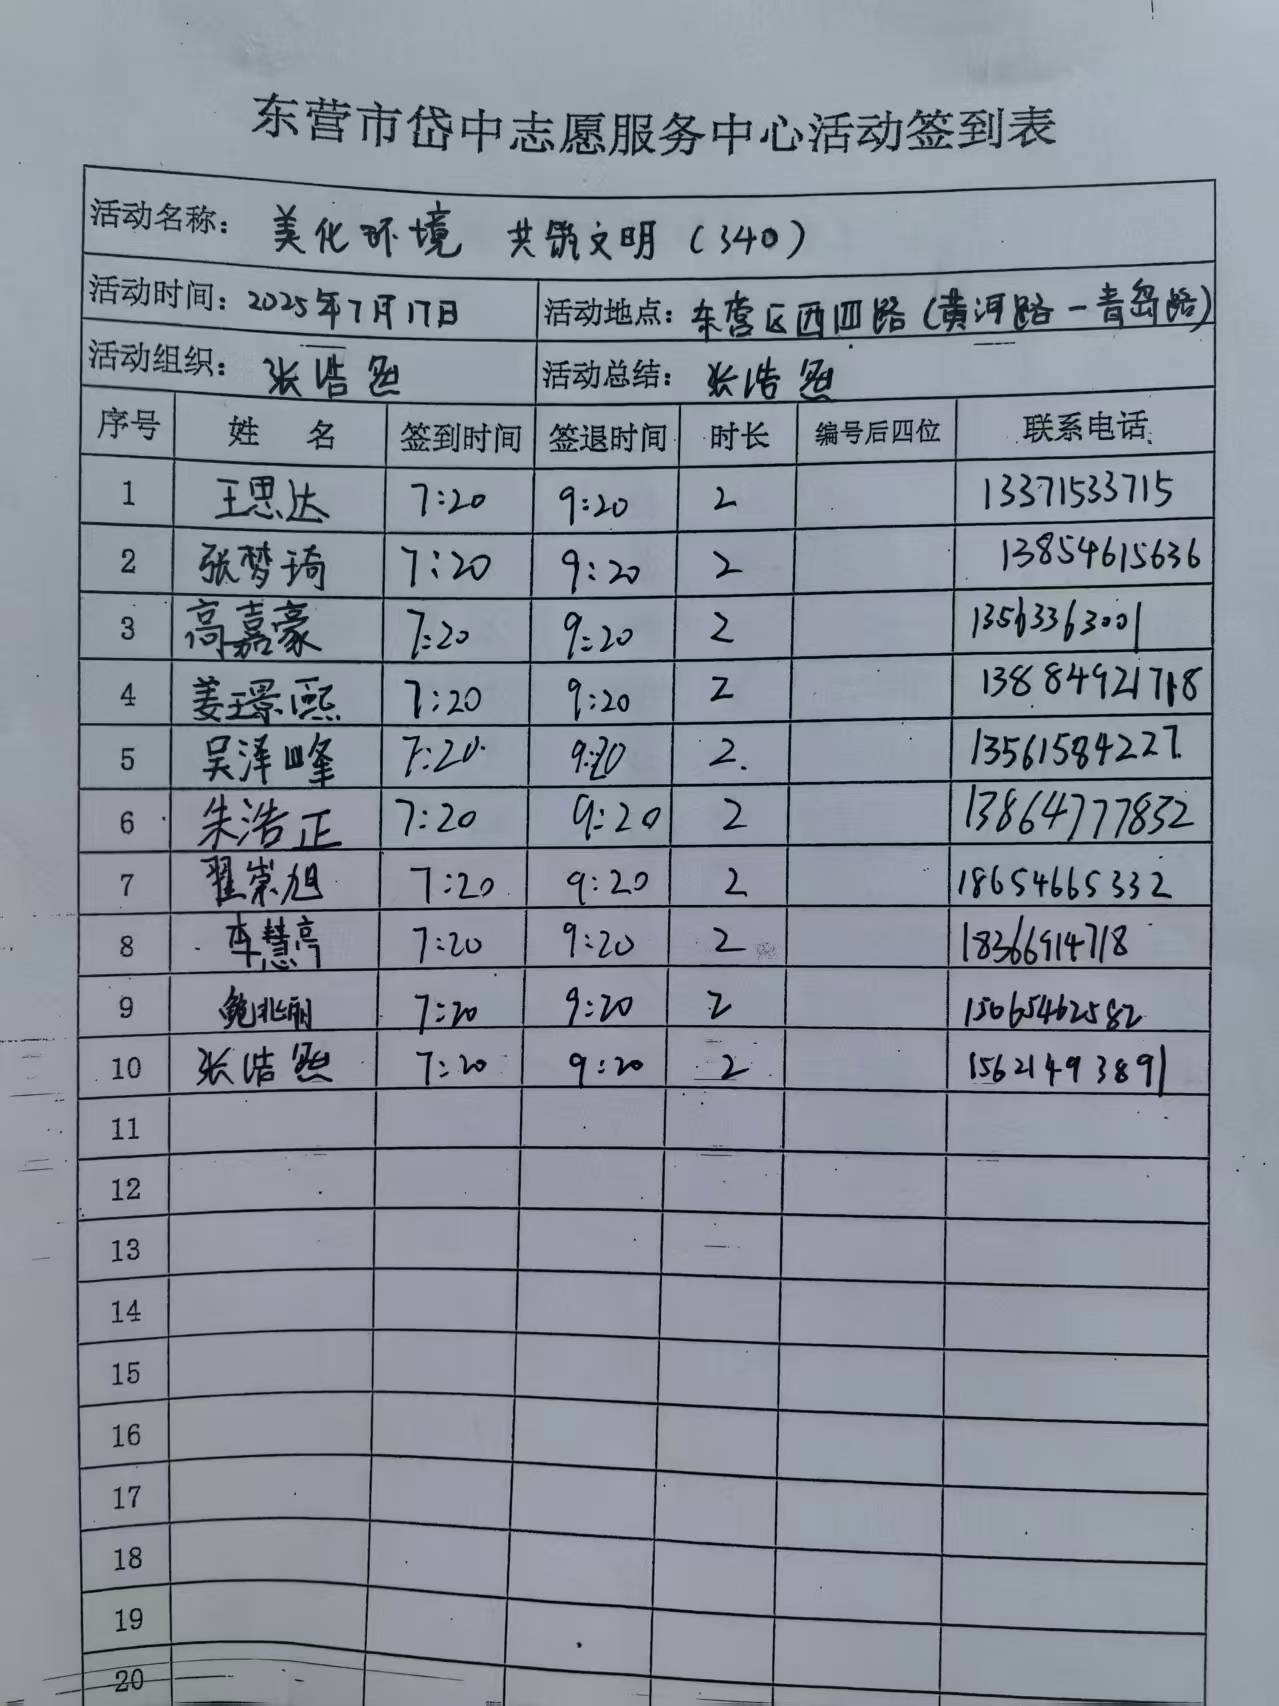 东营市岱中志愿服务中心活动签到表
活动名称： 美化环境 共筑文明（340）
活动时间：2025年7月17日 活动地点：东营区西四路（黄河路－青岛路）
活动组织： 张浩 活动总结： 张浩
序号 姓 名 签到时间 签退时间 时长 编号后四位 联系电话
1 王思达 7:20 9:20 2 13371533715
2 张梦琦 7:20 9:20 2 13854615636
3 高嘉豪 7:20 9:20 2 13563363001
4 姜璟熙 7:20 9:20 2 13884921718
5 吴泽峰 7:20 9:20 2. 13561584227.
6 朱浩正 7:20 9:20 2 13864777832
7 翟崇旭 7:20 9:20 2 18654665332
8 李慧亭 7:20 9:20 2 18366914718
9 鲍兆丽 7:20 9:20 2 15065462582
10 张浩 7:20 9:20 2 15621493891
11
12
13
14
15
16
17
18
19
20